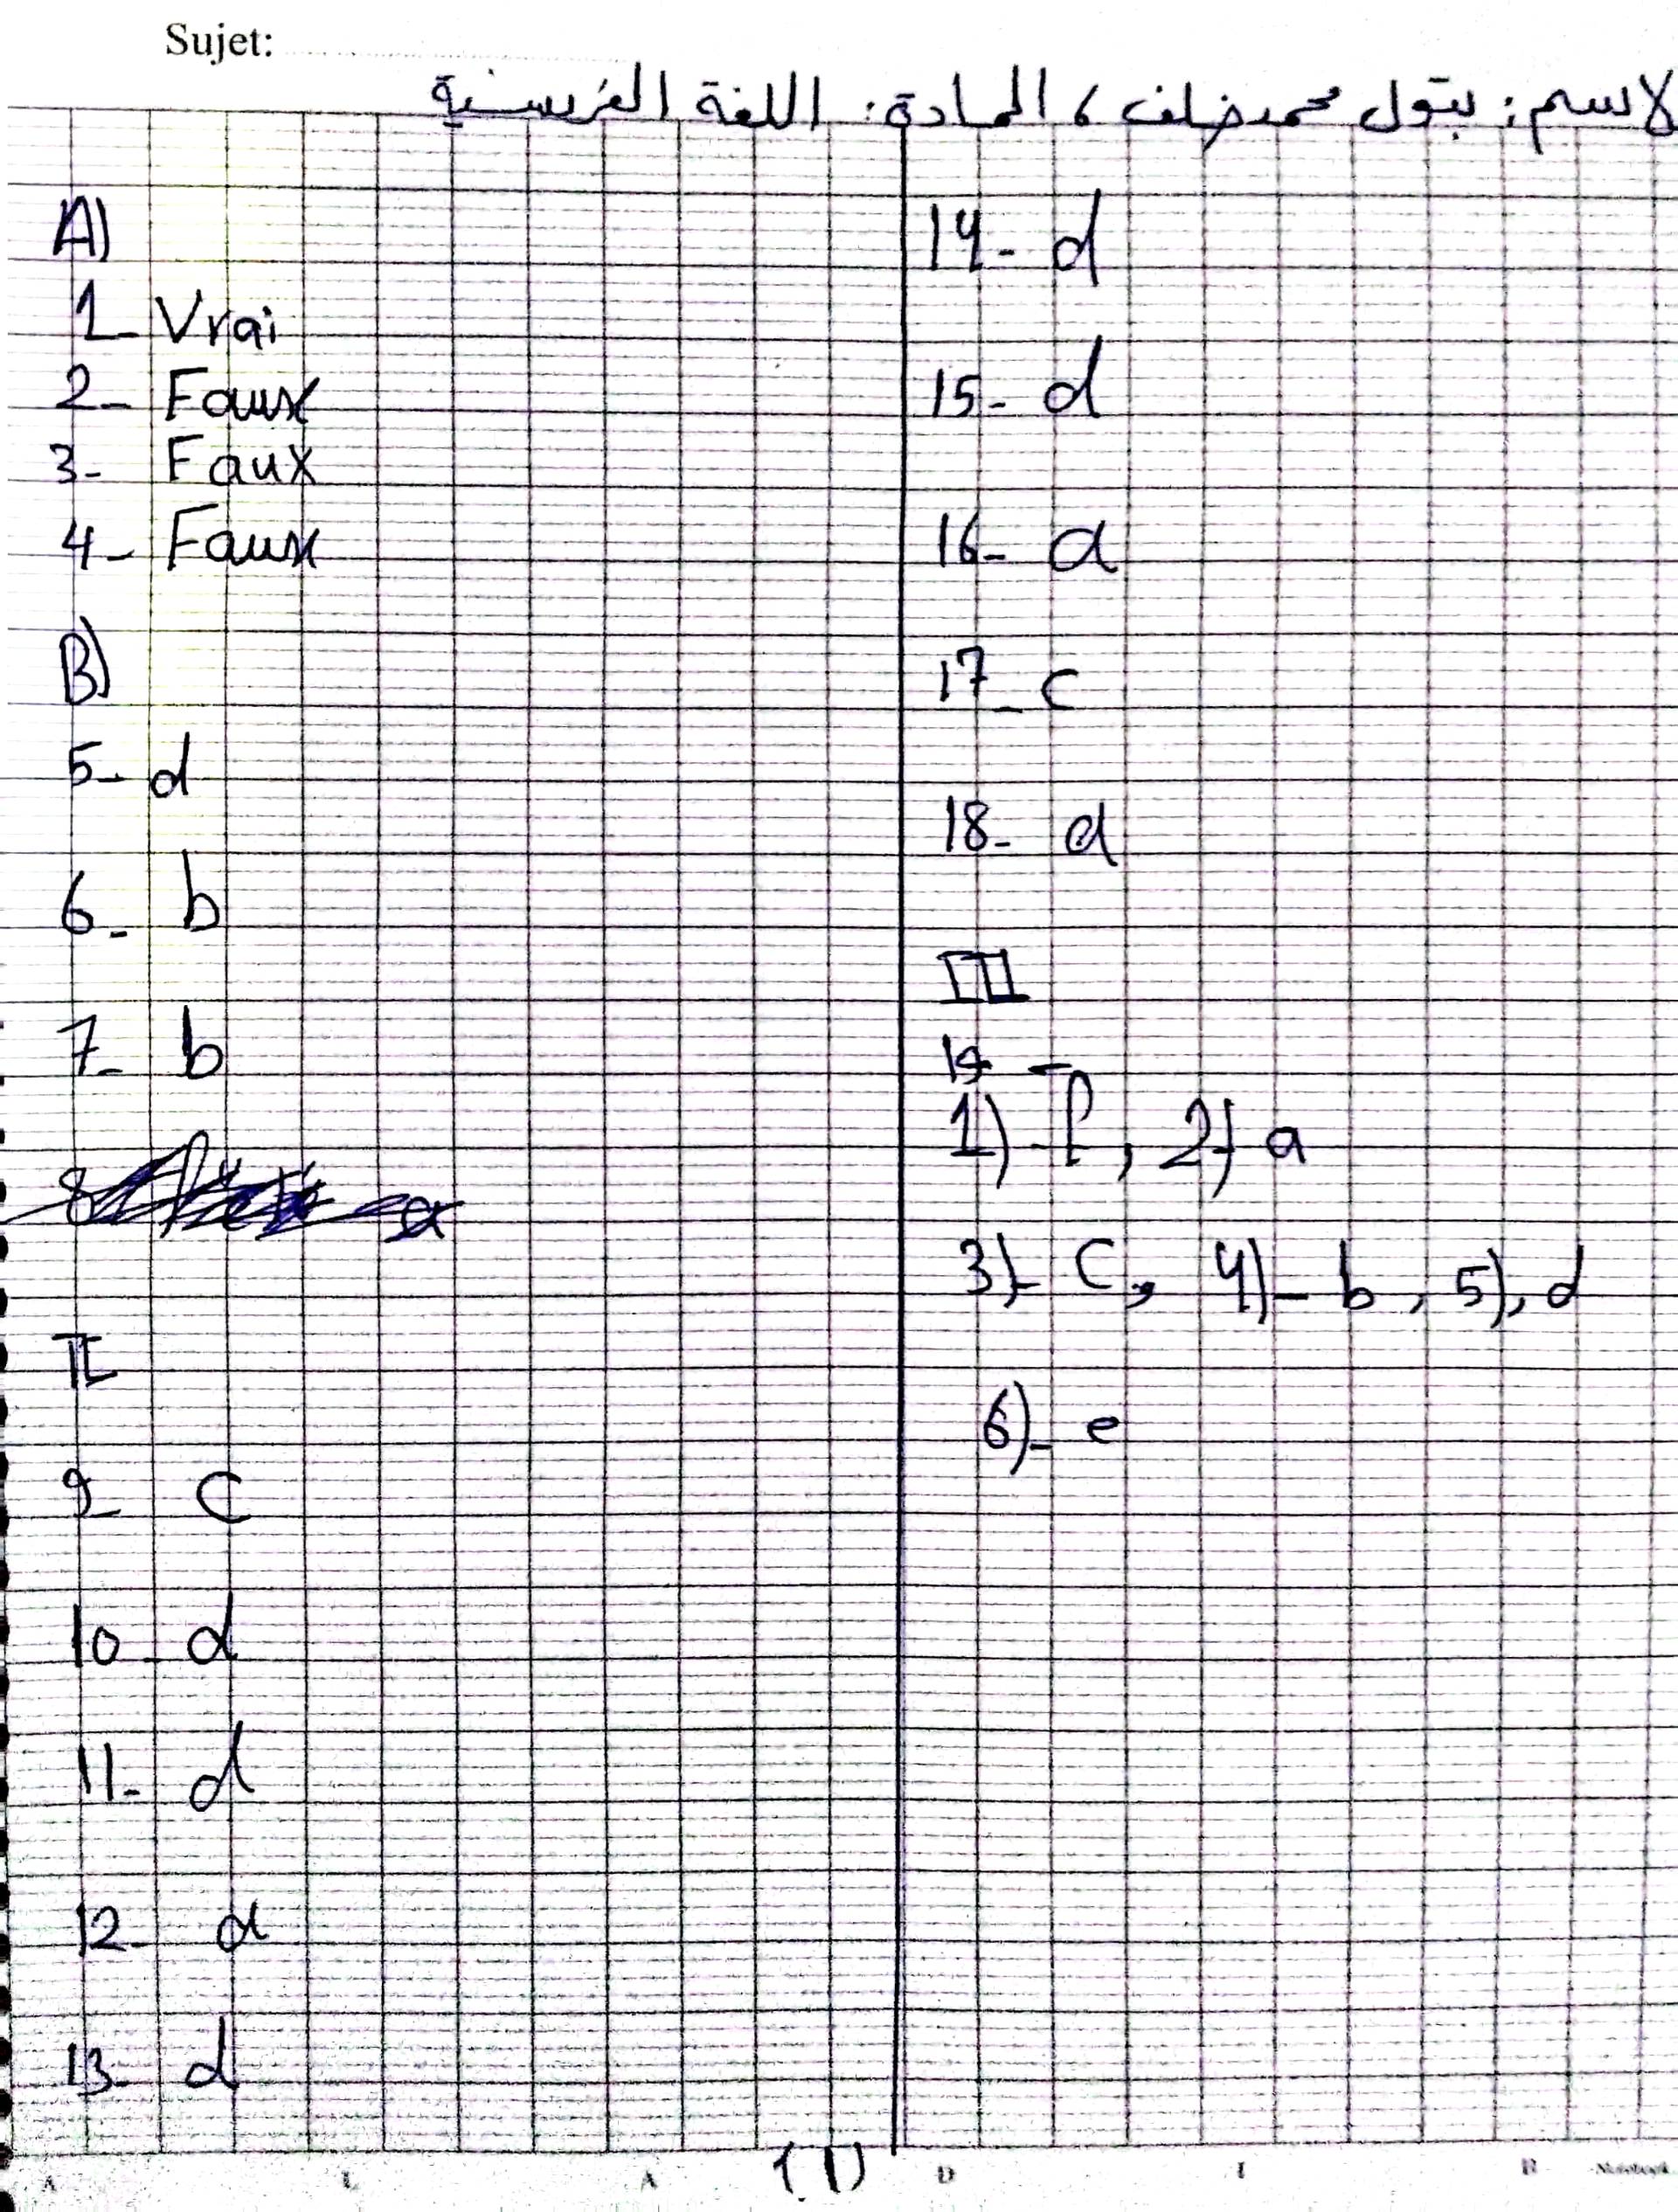 Sujet:
الاسم: بتول محمد خلف، المادة: اللغة الفرنسية
A)
1- Vrai
2- Faux
3- Faux
4- Faux
B)
5- d
6- b
7- b
II
9- c
10- d
11- d
12- d
13- d
14- d
15- d
16- d
17- c
18- d
III
19-
1)- f, 2)- a
3)- c, 4)- b, 5), d
6)- e
(1)
A L A D I B Notebook